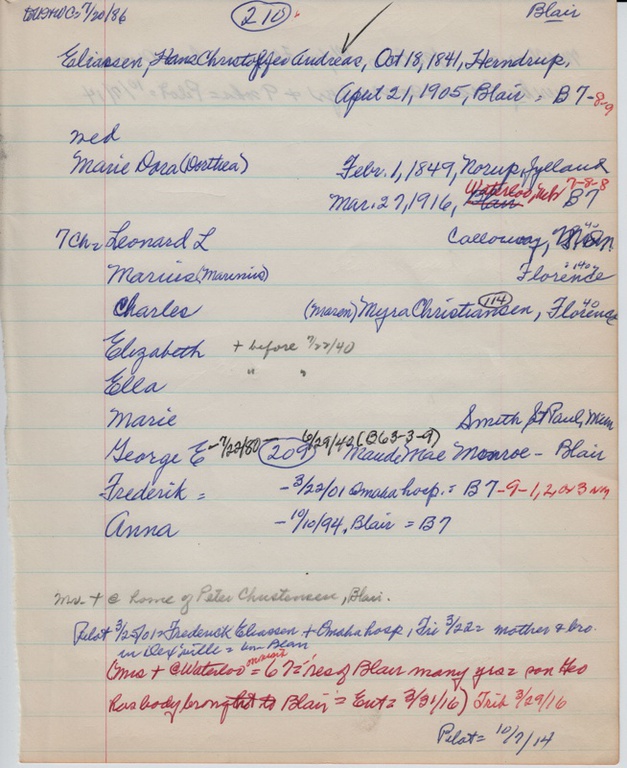 7/20/86 210 Blair
Eliassen, Hans Christoffer Andreas, Oct 18, 1841, Herndrup,
April 21, 1905, Blair = B7-8-9
wed
Marie Dora (Dorthea) Febr. 1, 1849, Norup, Jylland
Mar. 27, 1916, Blair Waterloo, Neb B7 7-8-8
7 Ch = Leonard L Calloway, 40
Marius (Marinius) Florence =1940=
Charles (Maren) Myra Christiansen, 114 Florence 40
Elizabeth + before 7/22/40
Ella " "
Marie Smith St Paul, Minn
George E -7/22/80 209 6/29/42 (B63-3-9) Maude Mae Monroe - Blair
Frederik = -3/22/01 Omaha hosp. = B7-9-1, 2, or 3
Anna -10/10/94, Blair = B7
Mr. + @ home of Peter Christensen, Blair.
Pilot 3/25/01 = Frederick Eliassen + Omaha hosp, Fri 3/22 = mother & bro.
in = Blair
(Mrs + @ Waterloo = 67 = res of Blair many yrs = son Geo
Has body brought to Blair = Ent = 3/31/16) Trib 3/29/16
Pilot = 10/7/14